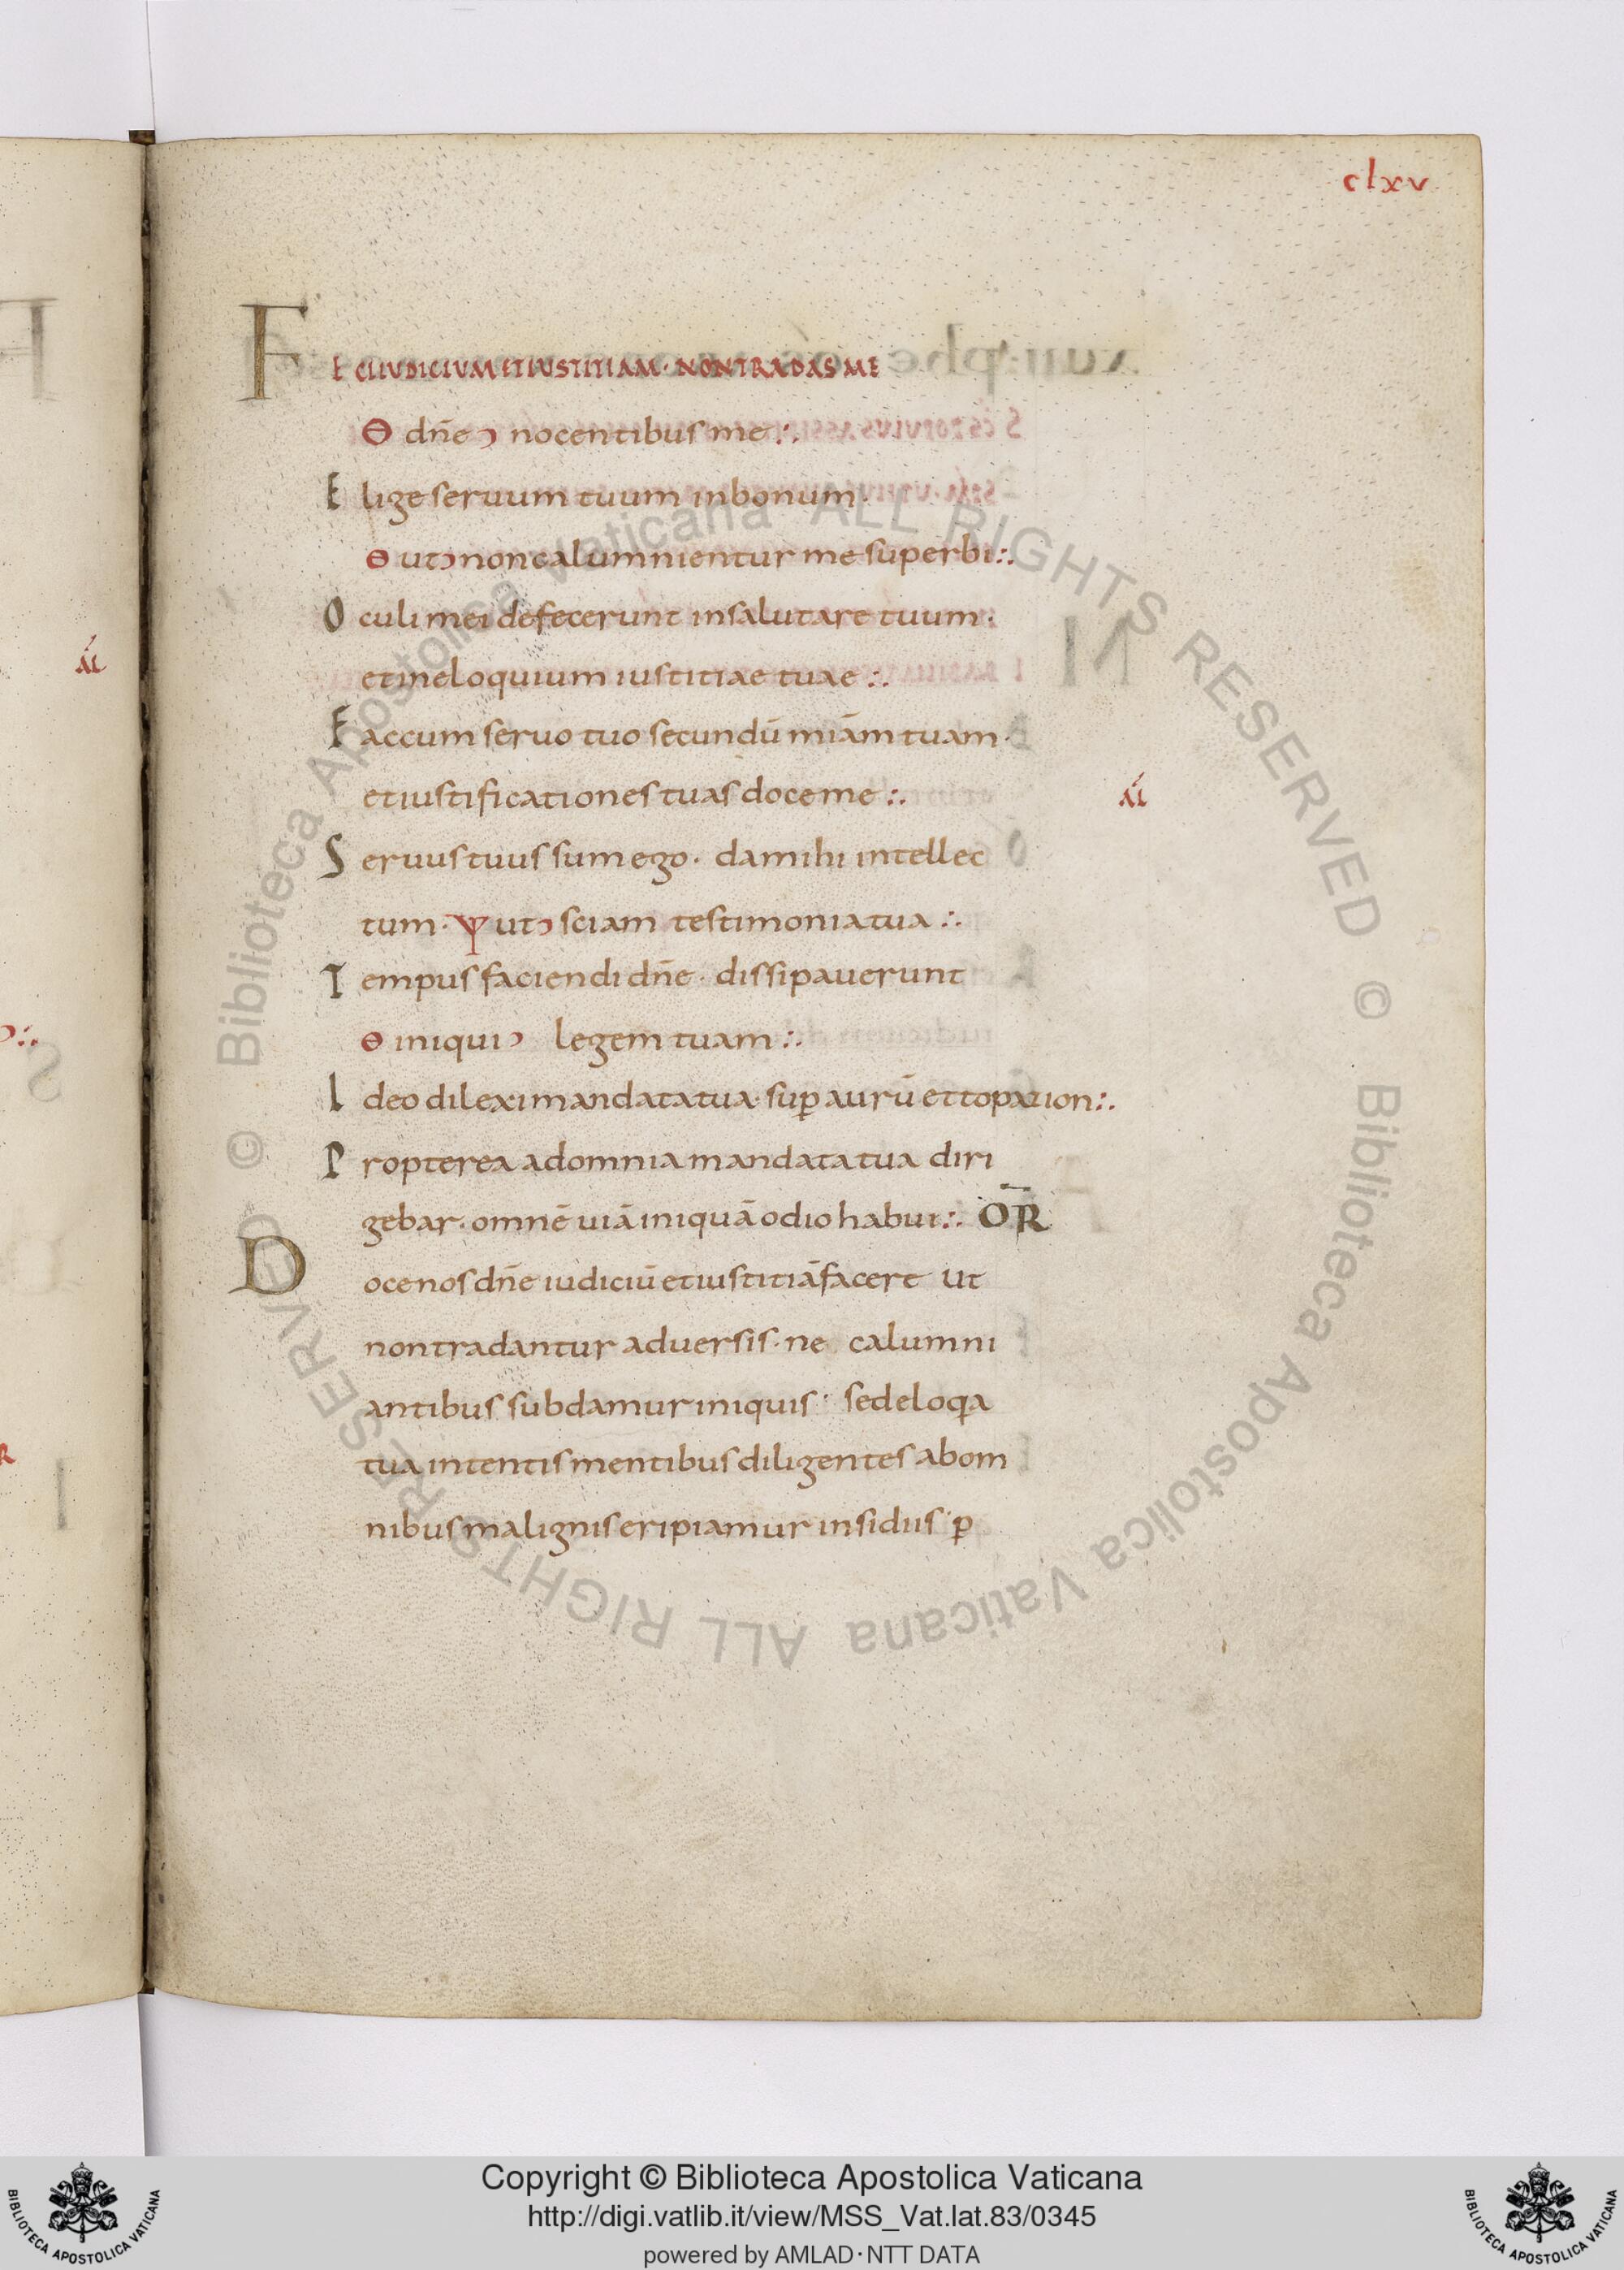 clxv
FECI IUDICIUM ET IUSTITIAM · NON TRADAS ME
Θ dn̄e ͻ nocentibus me :·
Elige seruum tuum in bonum ·
Θ ut ͻ non calumnientur me superbi :·
Oculi mei defecerunt in salutare tuum ·
et in eloquium iustitiae tuae :·
Fac cum seruo tuo secundū miām tuam ·
et iustificationes tuas doce me :·
Seruus tuus sum ego · da mihi intellec
tum · Ψ ut ͻ sciam testimonia tua :·
Tempus faciendi dn̄e · dissipauerunt
Θ iniqui ͻ legem tuam :·
Ideo dilexi mandata tua · sup̄ aurū et topazion :·
Propterea ad omnia mandata tua diri
gebar · omnē uiā iniquā odio habui :· ŌR
Doce nos dn̄e iudiciū et iustitiā facere ut
non tradantur aduersis · ne calumni
antibus subdamur iniquis · sed eloqa
tua intentis mentibus diligentes ab om
nibus malignis eripiamur insidiis · p̄
Copyright © Biblioteca Apostolica Vaticana
http://digi.vatlib.it/view/MSS_Vat.lat.83/0345
powered by AMLAD·NTT DATA
BIBLIOTECA APOSTOLICA VATICANA
BIBLIOTECA APOSTOLICA VATICANA
© Biblioteca Apostolica Vaticana ALL RIGHTS RESERVED © Biblioteca Apostolica Vaticana ALL RIGHTS RESERVED